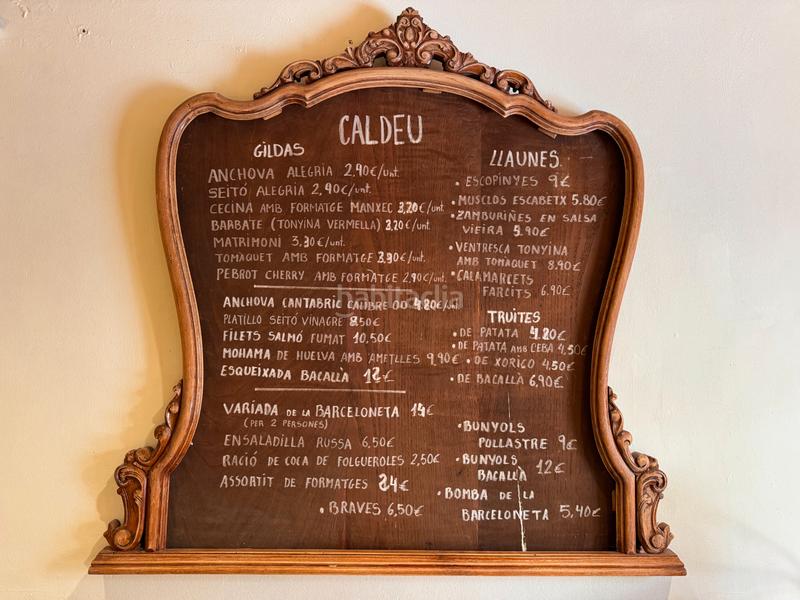 CALDEU
GILDAS
ANCHOVA ALEGRIA 2,90€/unt.
SEITÓ ALEGRIA 2,90€/unt.
CECINA AMB FORMATGE MANXEC 3,20€/unt.
BARBATE (TONYINA VERMELLA) 3,20€/unt.
MATRIMONI 3,30€/unt.
TOMAQUET AMB FORMATGE 3,90€/unt.
PEBROT CHERRY AMB FORMATGE 2,90€/unt.
ANCHOVA CANTABRIC CALIBRE 00 4,80€/unt.
PLATILLO SEITÓ VINAGRE 8,50€
FILETS SALMÓ FUMAT 10,50€
MOHAMA DE HUELVA AMB AMETLLES 9,90€
ESQUEIXADA BACALLÀ 12€
VARIADA DE LA BARCELONETA 15€
(PER 2 PERSONES)
ENSALADILLA RUSSA 6,50€
RACIÓ DE COCA DE FOLGUEROLES 2,50€
ASSORTIT DE FORMATGES 24€
• BRAVES 6,50€
LLAUNES
• ESCOPINYES 9€
• MUSCLOS ESCABETX 5.80€
• ZAMBURIÑES EN SALSA
VIEIRA 5.90€
• VENTRESCA TONYINA
AMB TOMÀQUET 8.90€
• CALAMARCETS
FARCITS 6.90€
TRUITES
• DE PATATA 4.20€
• DE PATATA AMB CEBA 4,50€
• DE XORICO 4,50€
• DE BACALLÀ 6,90€
• BUNYOLS
POLLASTRE 9€
• BUNYOLS
BACALLÀ 12€
• BOMBA DE LA
BARCELONETA 5,40€
habitaclia